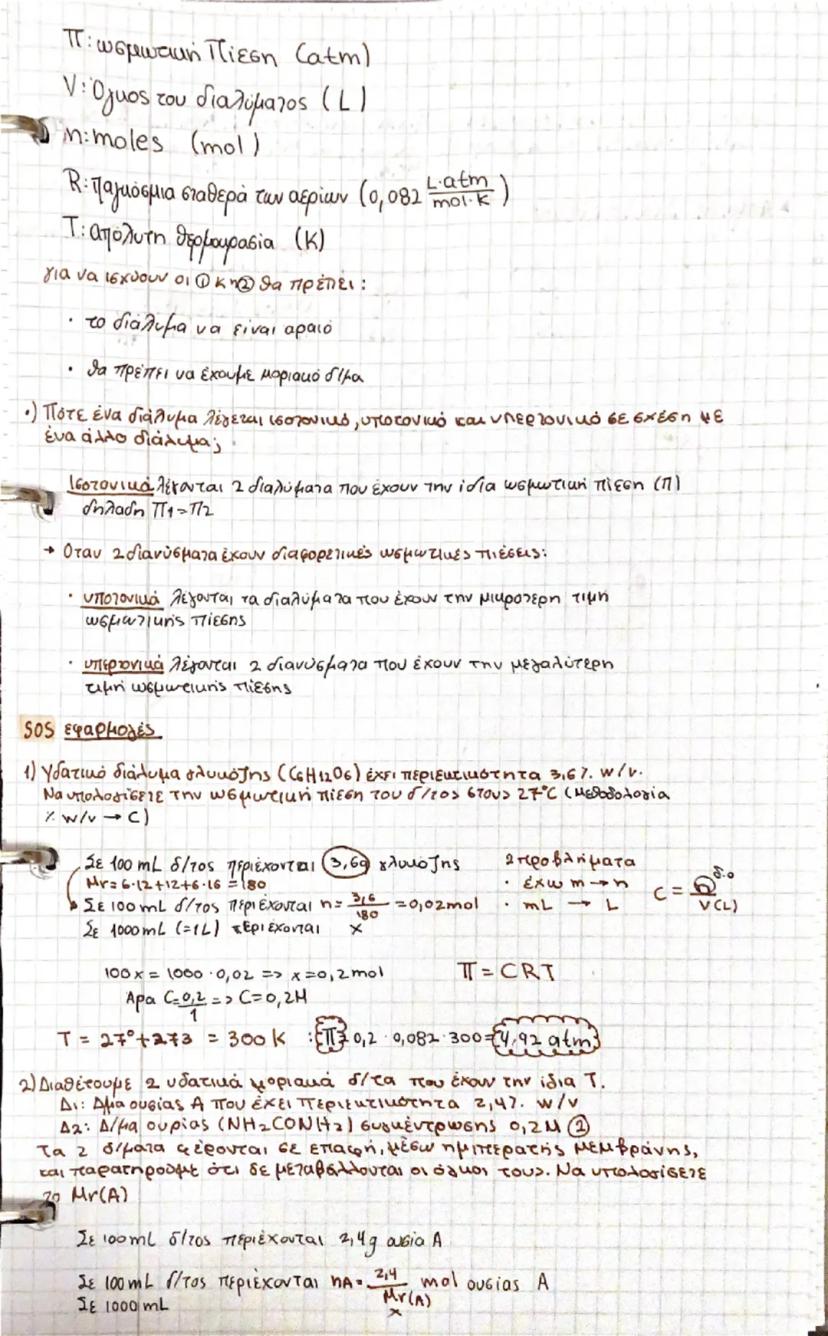 Π: ωσμωτική Πίεση (atm)
V: Όγκος του διαλύματος (L)
n: moles (mol)
R: παγκόσμια σταθερά των αερίων (0,082 L·atm/mol·K)
T: απόλυτη θερμοκρασία (K)
για να ισχύουν οι ① κ η ② θα πρέπει:
· το διάλυμα να είναι αραιό
· θα πρέπει να έχουμε μοριακό δ/μα
·) Πότε ένα διάλυμα λέγεται ισοτονικό, υποτονικό και υπερτονικό σε σχέση με
ένα άλλο διάλυμα;
Ισοτονικά λέγονται 2 διαλύματα που έχουν την ίδια ωσμωτική πίεση (Π)
δηλαδή Π1=Π2
→ Όταν 2 διανύσματα έχουν διαφορετικές ωσμωτικές πιέσεις:
· υποτονικά λέγονται τα διαλύματα που έχουν την μικρότερη τιμή
ωσμωτικής πίεσης
· υπερτονικά λέγονται 2 διανύσματα που έχουν την μεγαλύτερη
τιμή ωσμωτικής πίεσης
SOS εφαρμογές
1) Υδατικό διάλυμα γλυκόζης (C6H12O6) έχει περιεκτικότητα 3,6% w/v.
Να υπολογίσετε την ωσμωτική πίεση του δ/τος στους 27°C (μεθοδολογία
% w/v → C)
Σε 100 mL δ/τος περιέχονται 3,6g γλυκόζης
Mr=6·12+12+6·16=180
Σε 100 mL δ/τος περιέχονται n= 3,6/180 =0,02mol
Σε 1000 mL (=1L) περιέχονται x
2 προβλήματα
· έχω m → n
· mL → L
C = n/V(L)
100x = 1000·0,02 => x=0,2mol
Άρα C=0,2/1 => C=0,2M
Π = CRT
T = 27°+273 = 300 K : Π= 0,2·0,082·300= 4,92 atm
2) Διαθέτουμε 2 υδατικά μοριακά δ/τα που έχουν την ίδια T.
Δ1: Δ/μα ουσίας A που έχει περιεκτικότητα 2,4% w/v
Δ2: Δ/μα ουρίας (NH2CONH2) συγκέντρωσης 0,2M ②
Τα 2 δ/ματα φέρονται σε επαφή, μέσω ημιπερατής μεμβράνης,
και παρατηρούμε ότι δε μεταβάλλονται οι όγκοι τους. Να υπολογίσετε
το Mr(A)
Σε 100mL δ/τος περιέχονται 2,4g ουσία A
Σε 100 mL δ/τος περιέχονται nA= 2,4/Mr(A) mol ουσίας A
Σε 1000 mL x